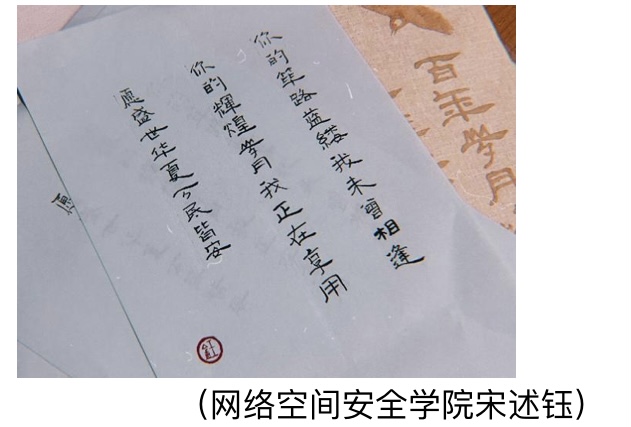 你的筚路蓝缕我未曾相逢
你的辉煌岁月我正在享用
愿盛世华夏万民皆安
百年岁月
愿
红
（网络空间安全学院宋述钰）